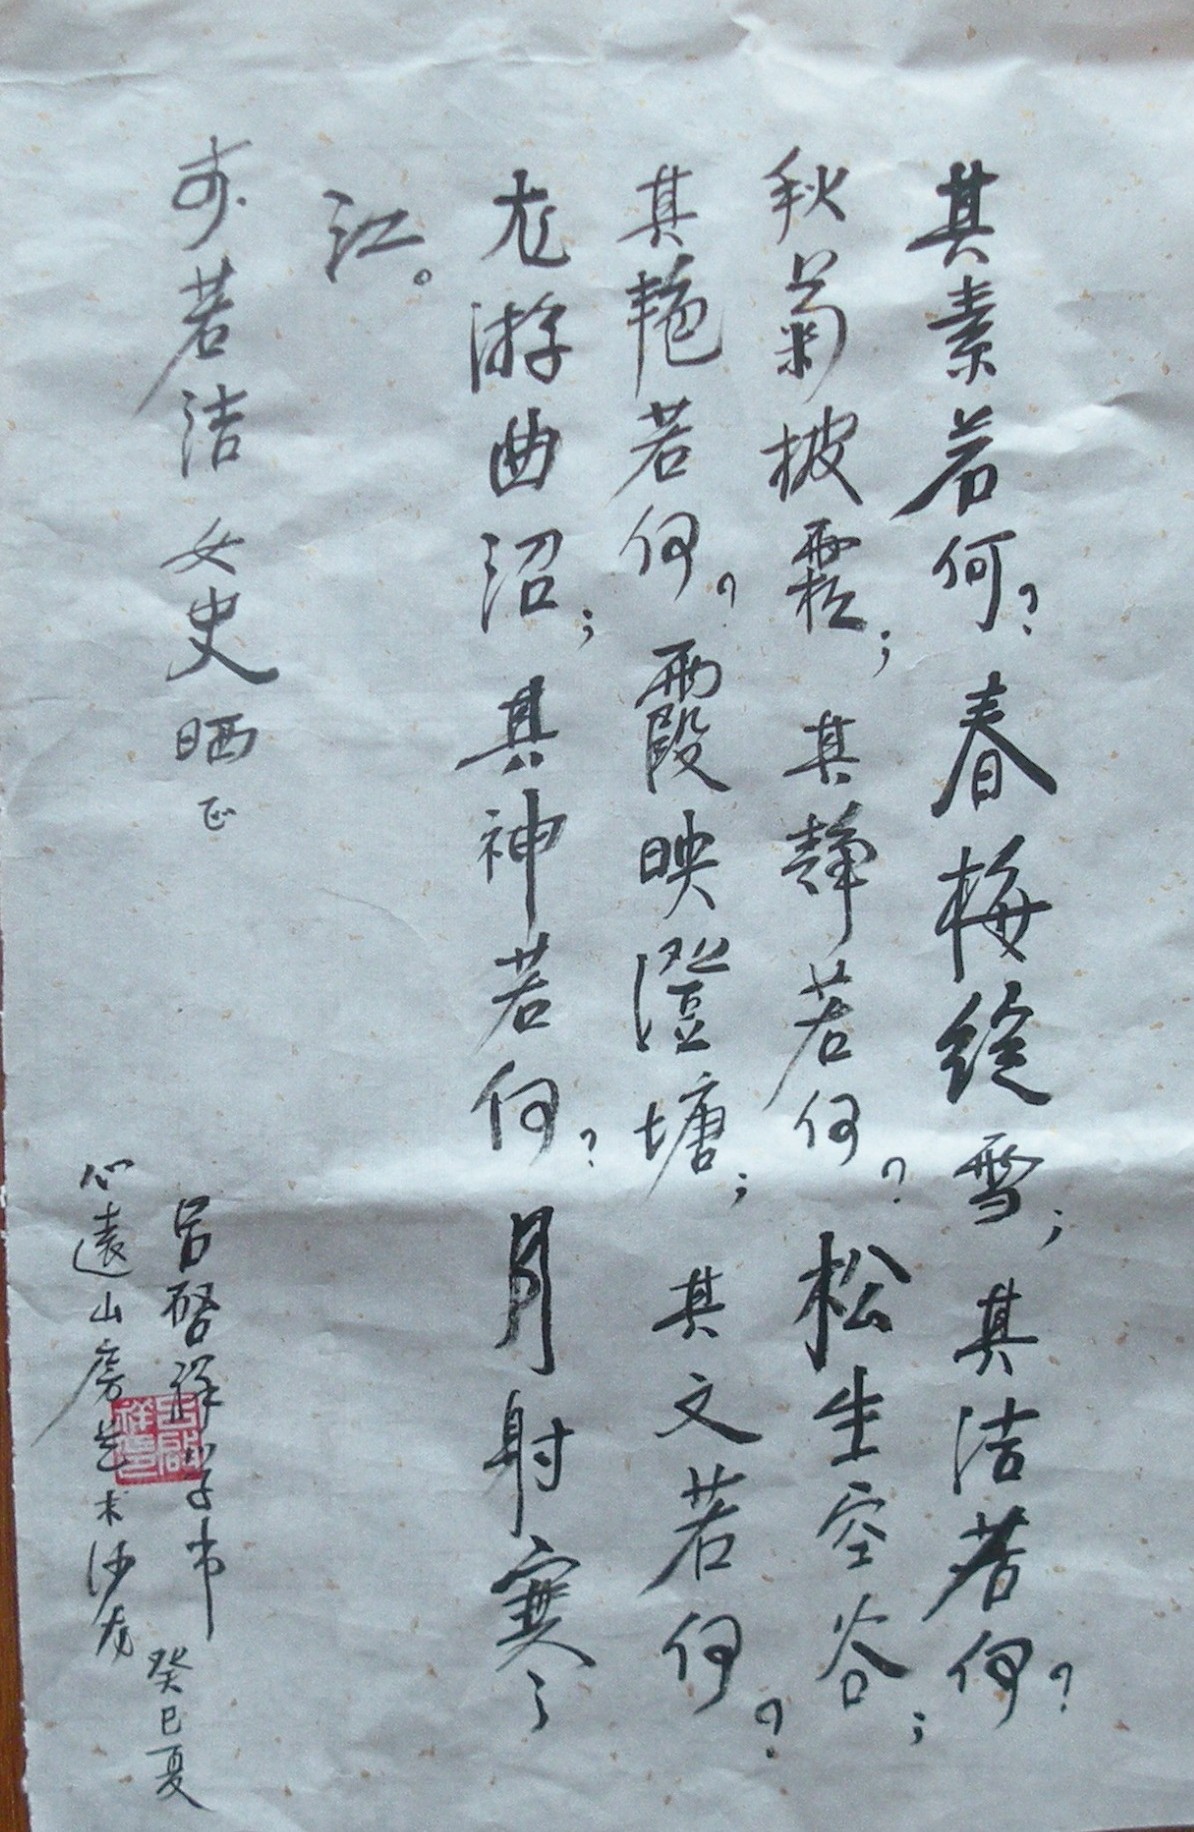 其素若何？春梅绽雪；其洁若何？
秋菊披霜；其静若何？松生空谷；
其艳若何？霞映澄塘；其文若何？
龙游曲沼；其神若何？月射寒
江。
若洁女史晒正
吕啓祥学书 癸巳夏
心遠山房艺术沙龙